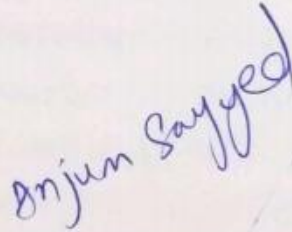 Anjum Sayyed